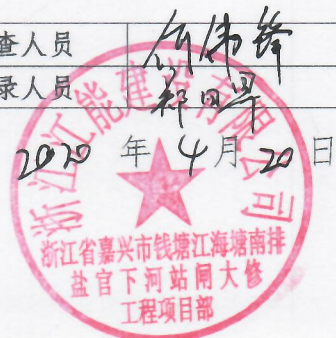 查人员
录人员
2020 年 4 月 20 日
浙江江能建设有限公司
浙江省嘉兴市钱塘江海塘南排
盐官下河站闸大修
工程项目部